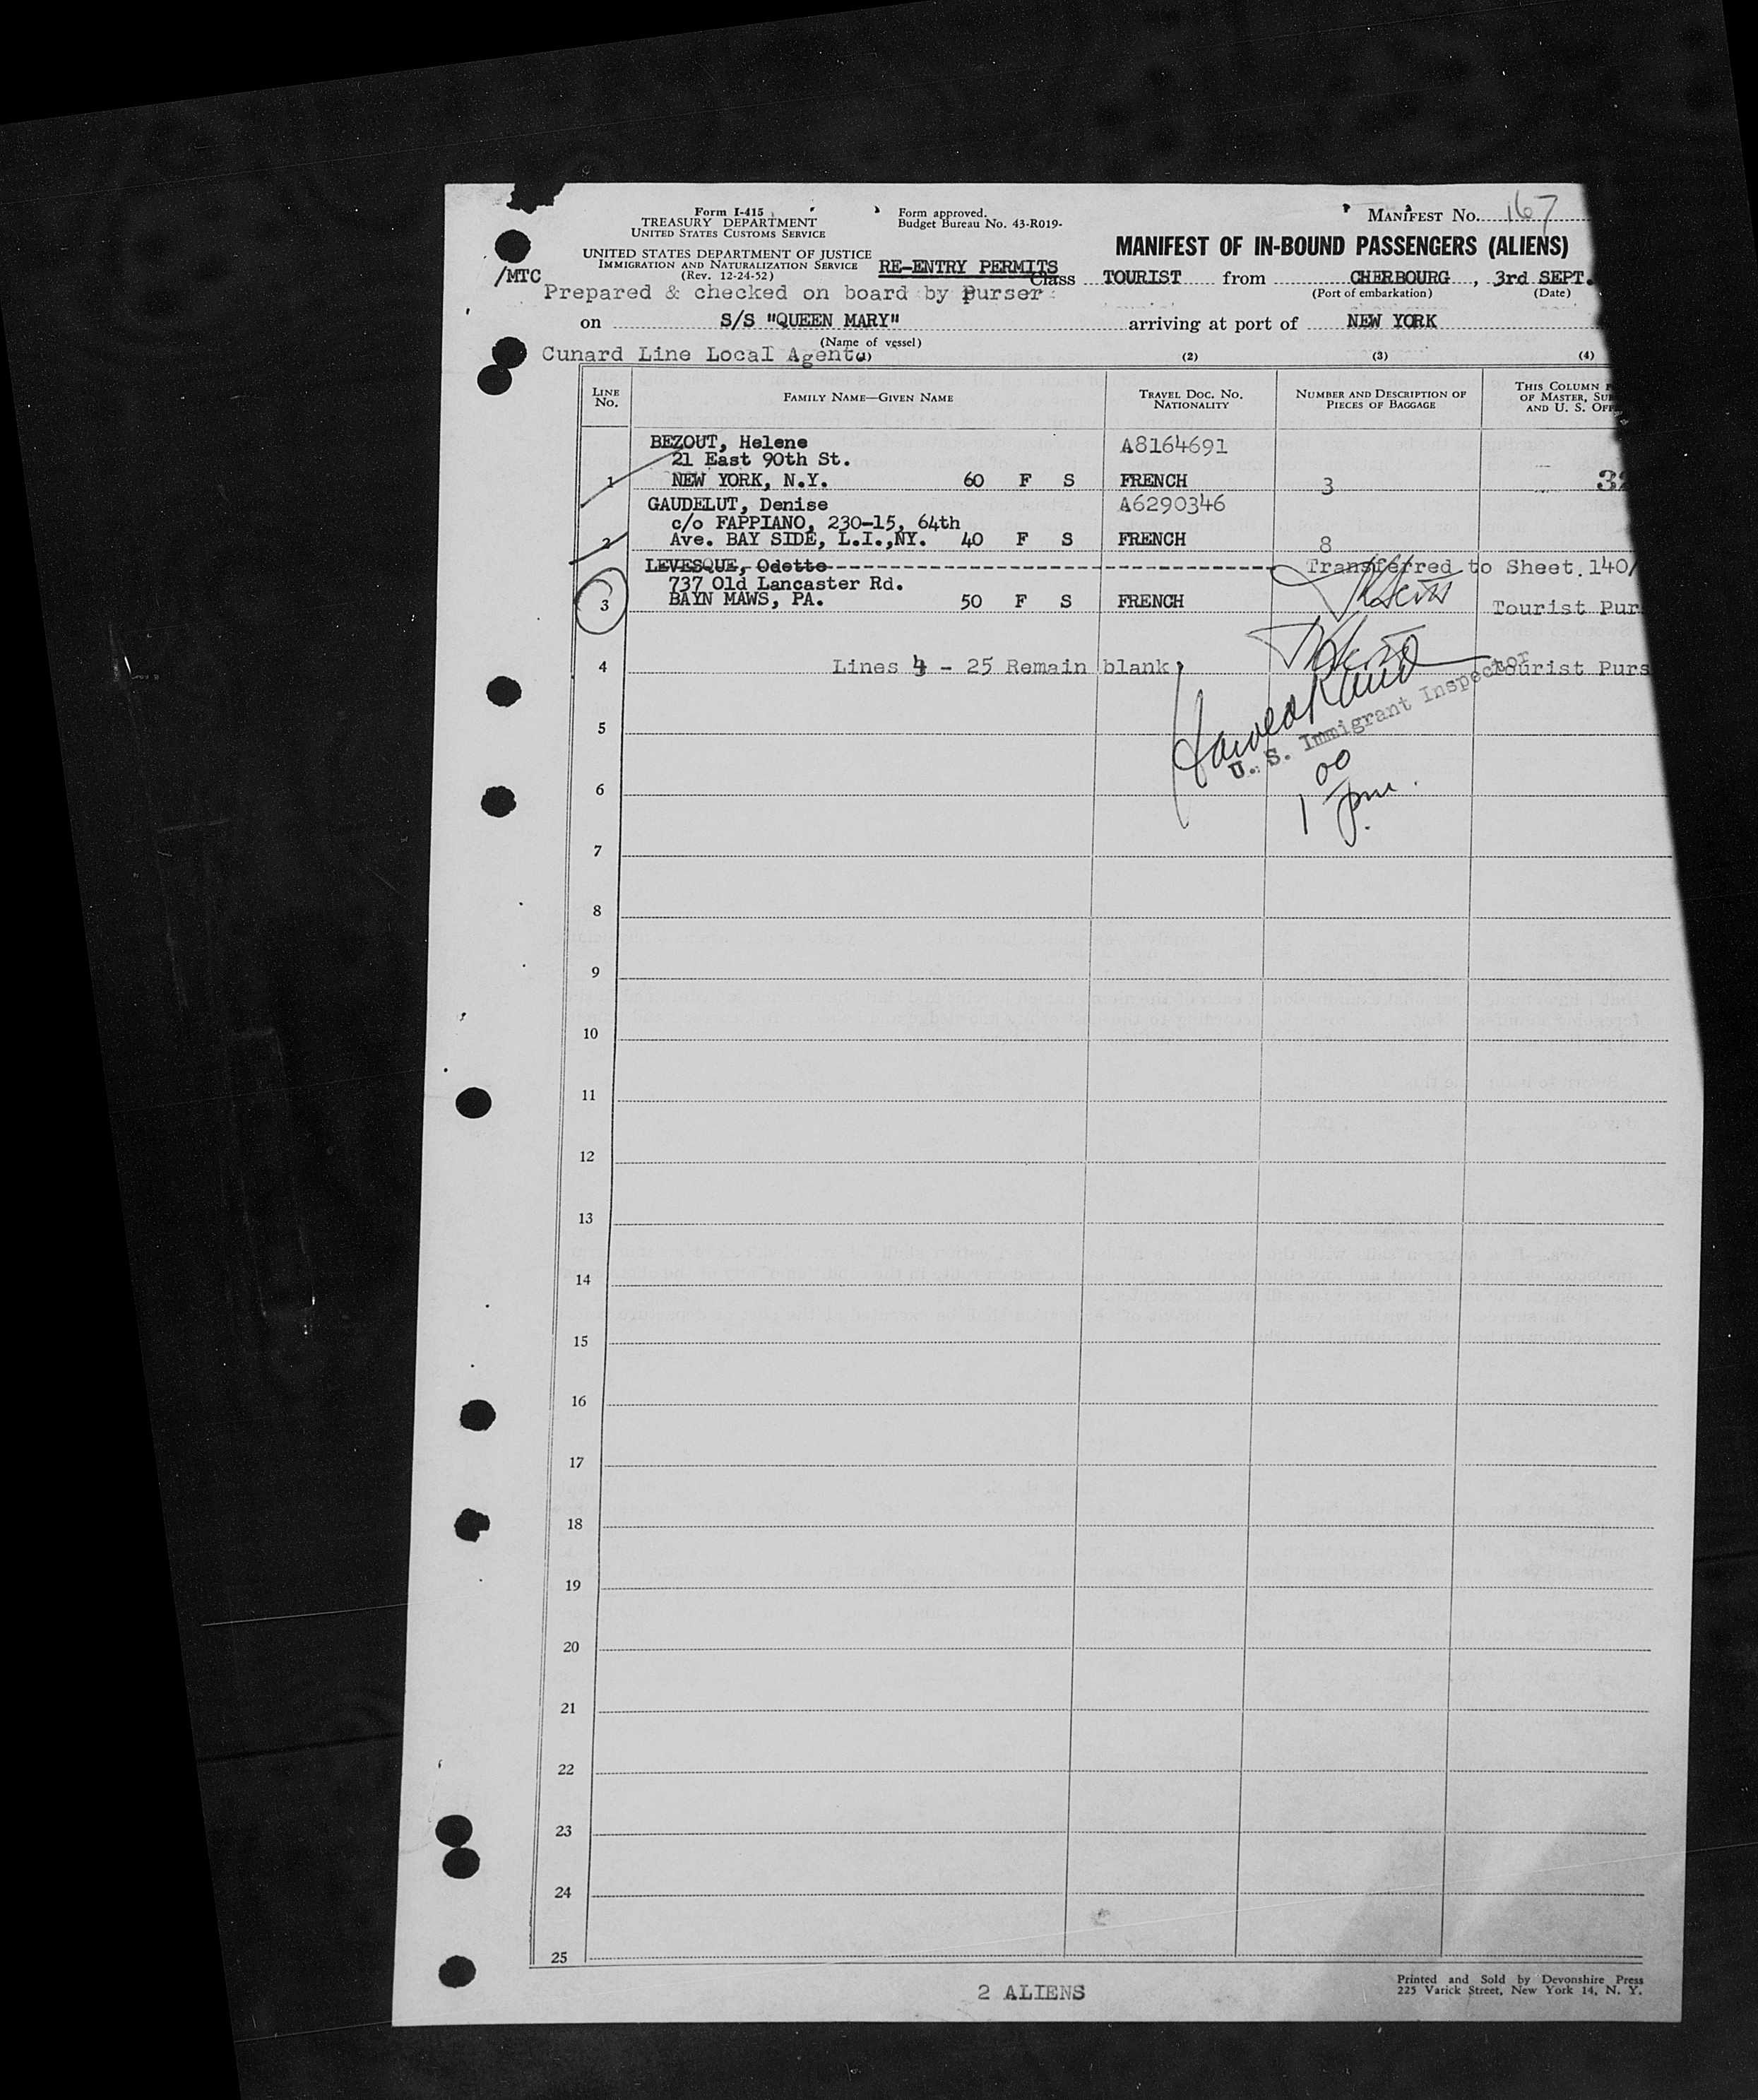 Form I-415
TREASURY DEPARTMENT
UNITED STATES CUSTOMS SERVICE
UNITED STATES DEPARTMENT OF JUSTICE
IMMIGRATION AND NATURALIZATION SERVICE
(Rev. 12-24-52)
Form approved.
Budget Bureau No. 43-R019-
MANIFEST NO. 167
MANIFEST OF IN-BOUND PASSENGERS (ALIENS)
/MTC RE-ENTRY PERMITS Class TOURIST from CHERBOURG, 3rd SEPT.
(Port of embarkation) (Date)
Prepared & checked on board by Purser
on S/S "QUEEN MARY" arriving at port of NEW YORK
(Name of vessel)
Cunard Line Local Agent
(2) (3) (4)
LINE No. FAMILY NAME—GIVEN NAME TRAVEL DOC. NO. NATIONALITY NUMBER AND DESCRIPTION OF PIECES OF BAGGAGE THIS COLUMN
OF MASTER,
AND U. S.
BEZOUT, Helene A8164691
21 East 90th St.
1 NEW YORK, N.Y. 60 F S FRENCH 3
GAUDELUT, Denise A6290346
c/o FAPPIANO, 230-15, 64th
2 Ave. BAY SIDE, L.I.,NY. 40 F S FRENCH 8
LEVESQUE, Odette Transferred to Sheet.140/
737 Old Lancaster Rd.
3 BAYN MAWS, PA. 50 F S FRENCH Tourist Pur
4 Lines 4 - 25 Remain blank Tourist Purs
U. S. Immigrant Inspector
1 00 pm.
5
6
7
8
9
10
11
12
13
14
15
16
17
18
19
20
21
22
23
24
25
2 ALIENS
Printed and Sold by Devonshire Press
225 Varick Street, New York 14, N. Y.